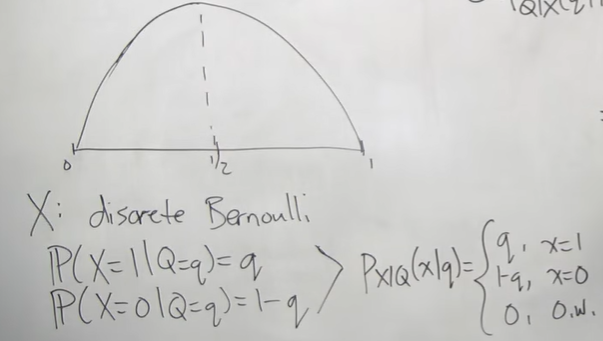 Q|X(q
0
1/2
1
X: discrete Bernoulli
P(X=1|Q=q)=q
P(X=0|Q=q)=1-q
P_{X|Q}(x|q)={q, x=1
1-q, x=0
0, o.w.